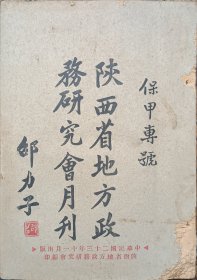 保甲專號
陝西省地方政
務研究會月刊
邵力子
中華民國二十三年十一月出版
陝西省地方政務研究會編印